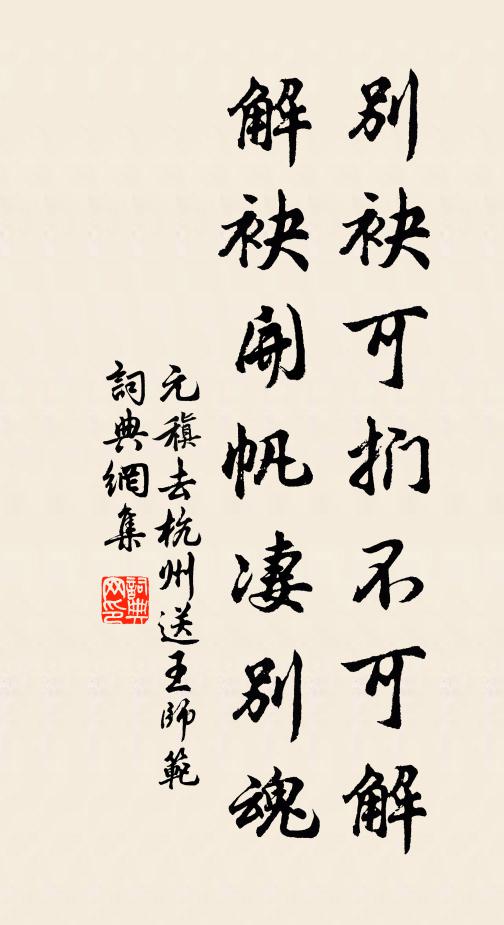 別袂可捫不可解
解袂開帆凄別魂
元稹去杭州送王師範
詞典網集
詞典網印